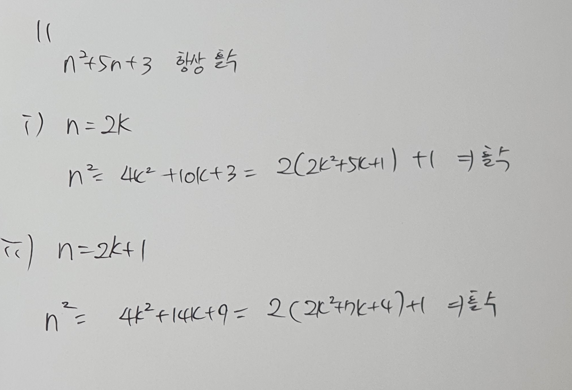 11
n²+5n+3 항상 홀수
i) n=2k
n²= 4k²+10k+3= 2(2k²+5k+1)+1 ⇒홀수
ii) n=2k+1
n²= 4k²+14k+9= 2(2k²+7k+4)+1 ⇒홀수